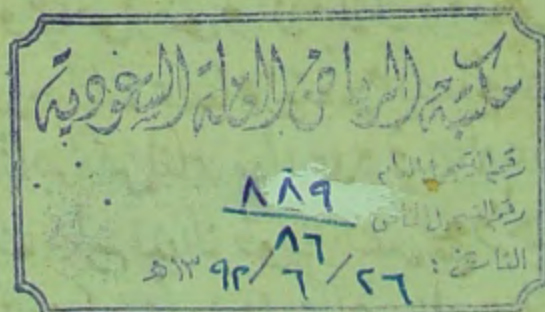 مكتبة الرياض العامة السعودية
رقم التسجيل العام ٨٨٩
رقم التسجيل الخاص ٨٦
التاريخ : ٢٦ / ٦ / ١٣٩٢هـ